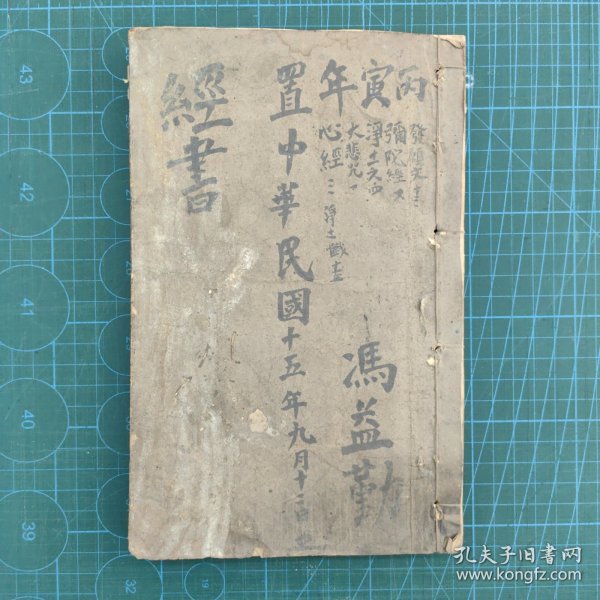 丙寅年
發願文
彌陀經
淨土文
大悲咒
心經
淨土懺
馮益勤
置中華民國十五年九月十
經書
43
42
41
40
39
32
19
孔夫子旧书网
www.kongfz.com